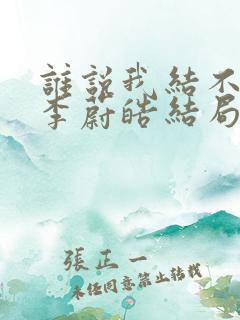 誰說我結不
李蔚皓結局
張正一
未經同意禁止轉載